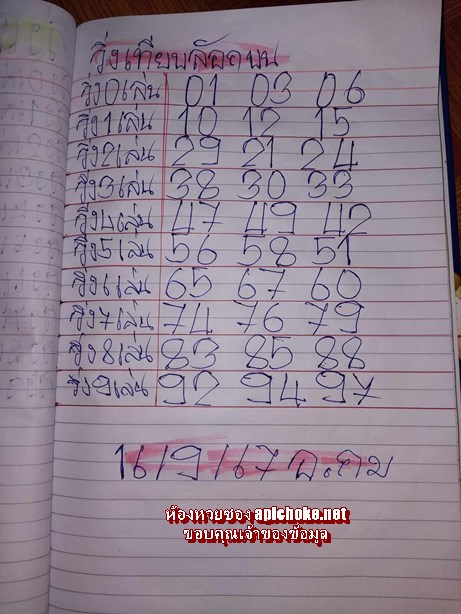 วิ่งเทียบล๊อดบน
วิ่ง0เล่น 01 03 06
วิ่ง1เล่น 10 12 15
วิ่ง2เล่น 29 21 24
วิ่ง3เล่น 38 30 33
วิ่ง4เล่น 47 49 42
วิ่ง5เล่น 56 58 51
วิ่ง6เล่น 65 67 60
วิ่ง7เล่น 74 76 79
วิ่ง8เล่น 83 85 88
วิ่ง9เล่น 92 94 97
16/9/67
ห้องหวยซอง apichoke.net
ขอบคุณเจ้าของข้อมูล